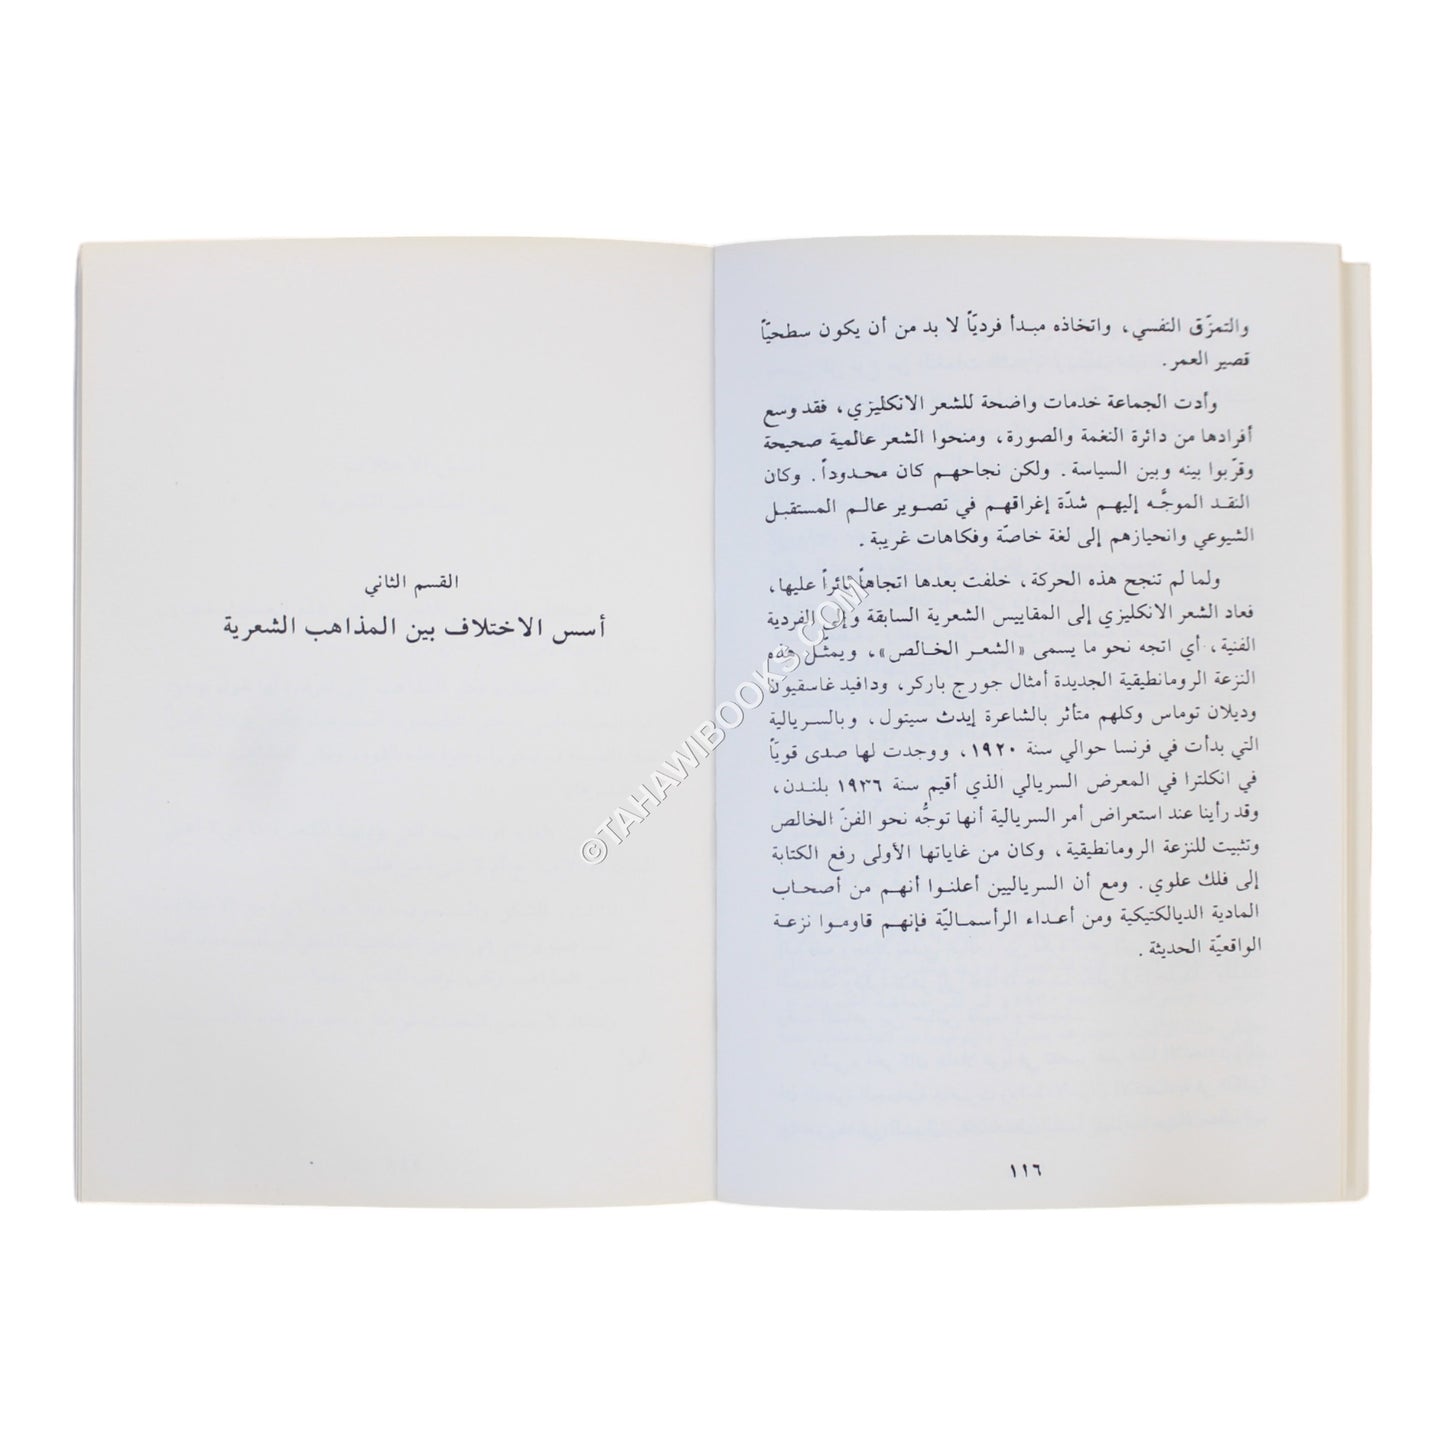 والتمزّق النفسي، واتخاذه مبدأ فرديّاً لا بد من أن يكون سطحيّاً
قصير العمر.
وأدت الجماعة خدمات واضحة للشعر الانكليزي، فقد وسع
أفرادها من دائرة النغمة والصورة، ومنحوا الشعر عالمية صحيحة
وقرّبوا بينه وبين السياسة. ولكن نجاحهم كان محدوداً. وكان
النقد الموجَّه إليهم شدّة إغراقهم في تصوير عالم المستقبل
الشيوعي وانحيازهم إلى لغة خاصّة وفكاهات غريبة.
ولما لم تنجح هذه الحركة، خلفت بعدها اتجاهاً ثائراً عليها،
فعاد الشعر الانكليزي إلى المقاييس الشعرية السابقة وإلى الفردية
الفنية، أي اتجه نحو ما يسمى «الشعر الخالص»، ويمثّل هذه
النزعة الرومانطيقية الجديدة أمثال جورج باركر، ودافيد غاسقيون
وديلان توماس وكلهم متأثر بالشاعرة إيدث سيتول، وبالسريالية
التي بدأت في فرنسا حوالي سنة ١٩٢٠، ووجدت لها صدى قويّاً
في انكلترا في المعرض السريالي الذي أقيم سنة ١٩٣٦ بلندن،
وقد رأينا عند استعراض أمر السريالية أنها توجُّه نحو الفنّ الخالص
وتثبيت للنزعة الرومانطيقية، وكان من غاياتها الأولى رفع الكتابة
إلى فلك علوي. ومع أن السرياليين أعلنوا أنهم من أصحاب
المادية الديالكتيكية ومن أعداء الرأسماليّة فإنهم قاوموا نزعة
الواقعيّة الحديثة.
١١٦
القسم الثاني
أسس الاختلاف بين المذاهب الشعرية
©TAHAWIBOOKS.COM